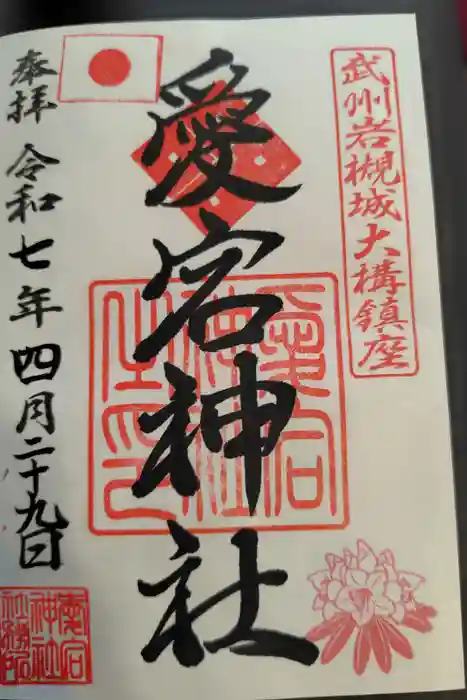 武州岩槻城大構鎮座
愛宕神社
愛宕
神社
之印
奉拝
令和七年四月二十九日
愛宕
神社
社務所